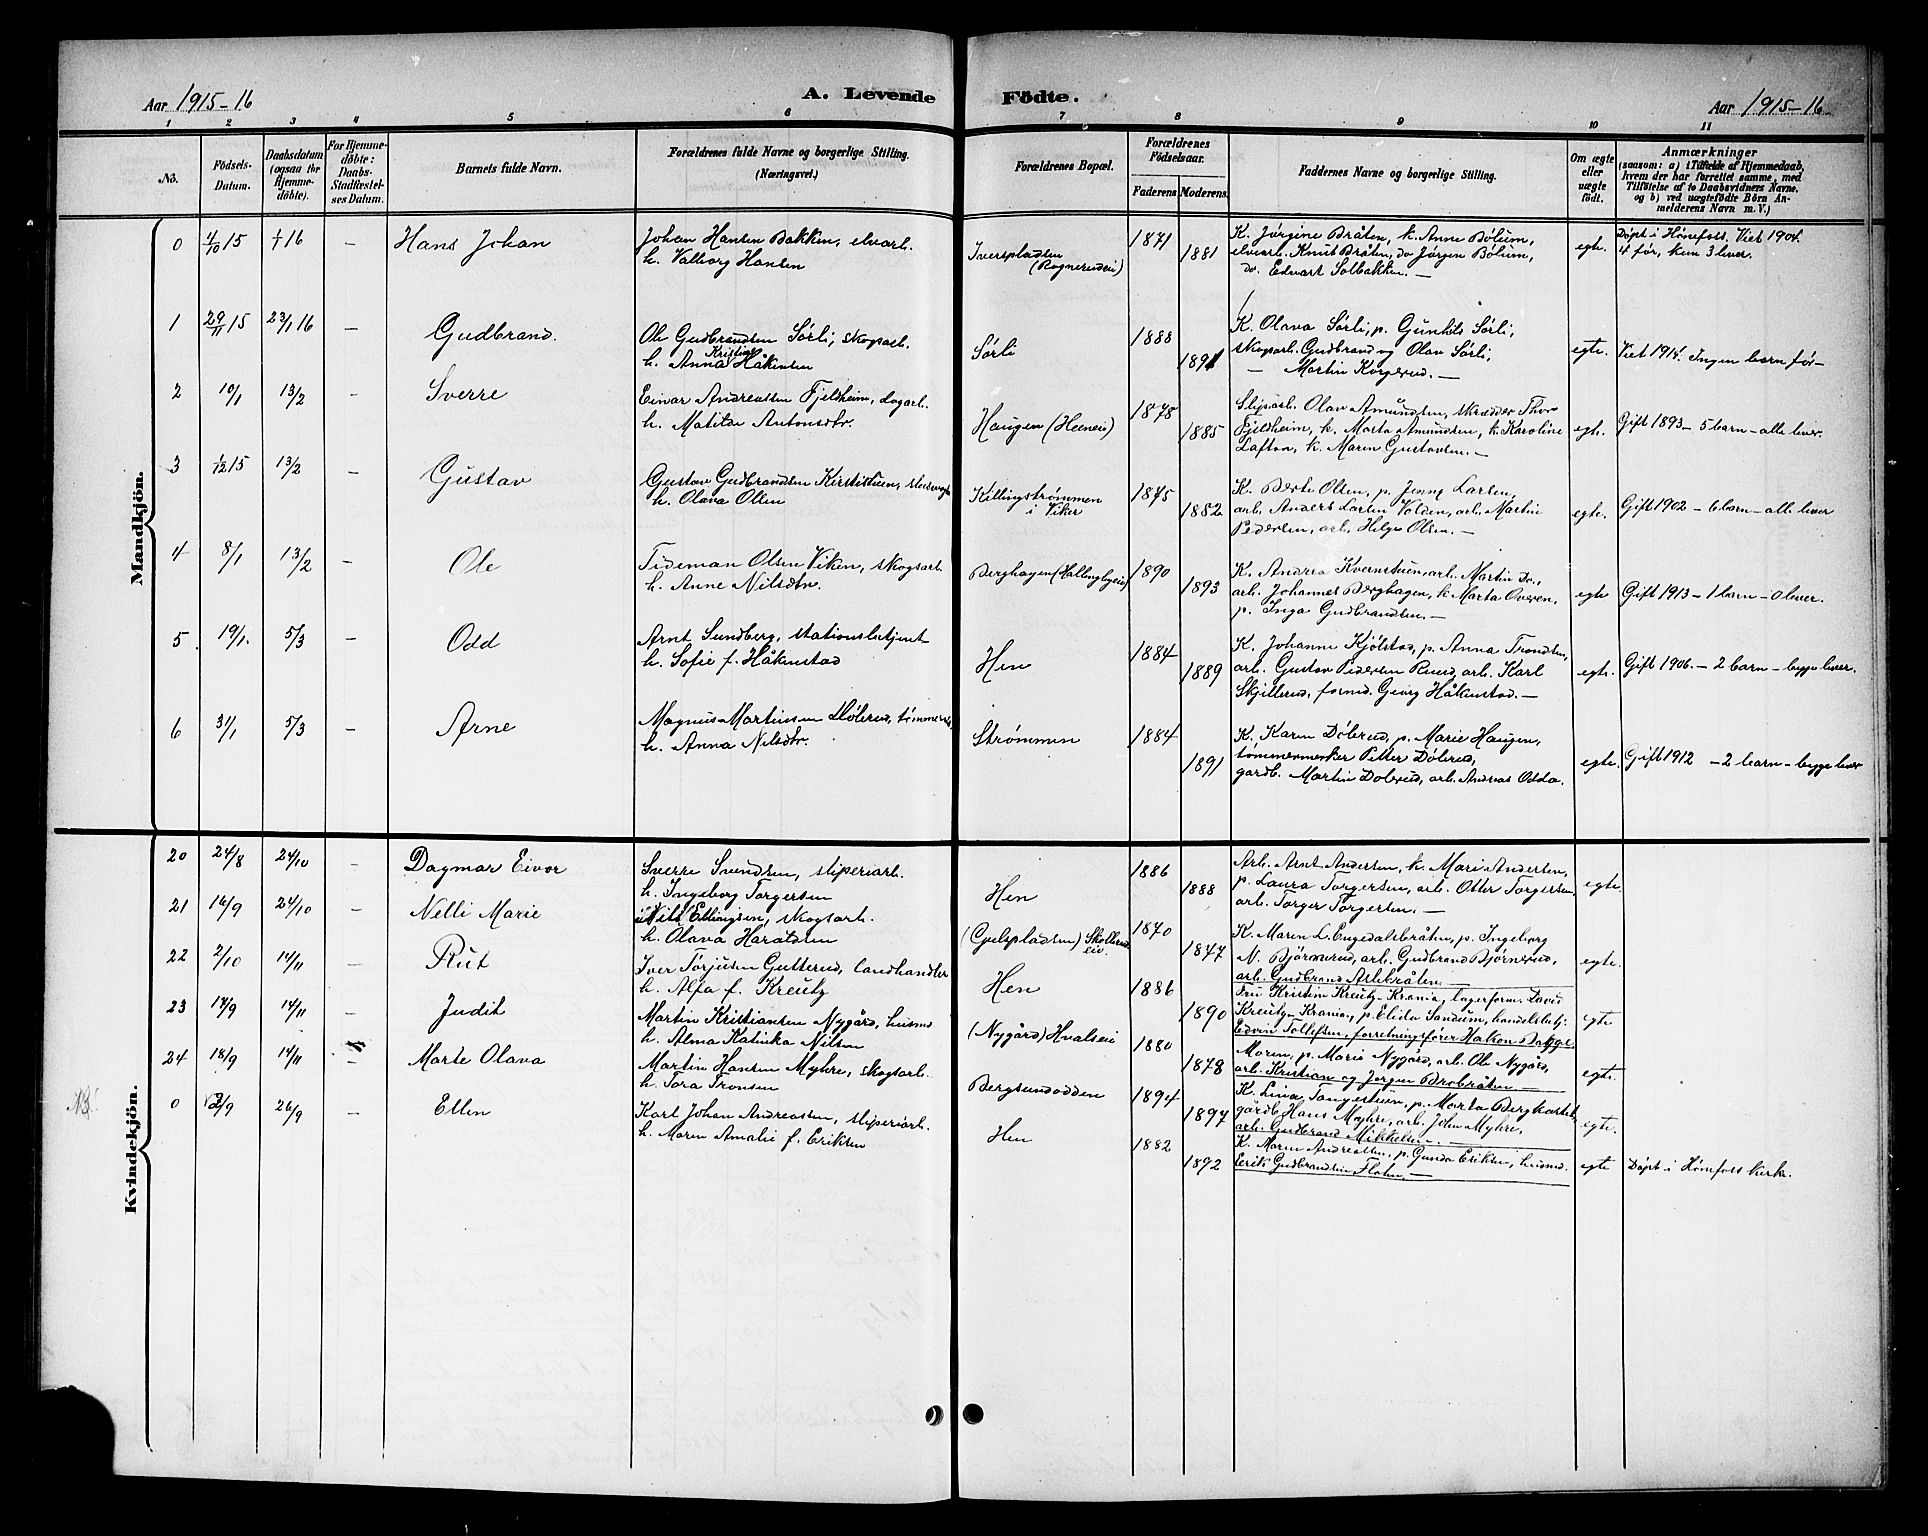 Aar 1915-16
A. Levende Födte.
Aar 1915-16
1 2 3 4 5 6 7 8 9 10 11
No.
Födsels-Datum.
Daabsdatum (ogsaa for Hjemmedöbte).
For Hjemmedøbte: Daabs-Stadfæstelses Datum.
Barnets fulde Navn.
Forældrenes fulde Navne og borgerlige Stilling. (Næringsvei.)
Forældrenes Bopæl.
Forældrenes Födselsaar.
Faderens. Moderens.
Faddernes Navne og borgerlige Stilling.
Om ægte eller uægte födt.
Anmærkninger
(saasom: a) i Tilfælde af Hjemmedaab,
hvem der har forrettet samme, med
Tilföielse af to Daabsvidners Navne.
og b) ved uægtefödte Börn An-
melderens Navn m. V.)
Mandkjön.
0 4/10 15 1/1 16 – Hans Johan
Johan Hansen Bakken, elvarb.
h. Valborg Hansen
Iverspladsen
(Rognerudei)
1871 1881
K. Jørgine Bråten, k. Anne Bølum,
elvearb. Knut Bråten, do Jørgen Bølum,
do. Edvart Solbakken. –
egte.
Døpt i Hønefoss. Viet 1904.
4 før, kun 3 lever.
1 29/11 15 23/1 16 – Gudbrand.
Ole Gudbrandsen Sørli, skogsarb.
h. Anna Kristine Håkensen
Sørli
1888 1891
K. Olava Sørli, p. Gunhild Sørli,
skogsarb. Gudbrand og Olav Sørli,
– Martin Korgerud. –
egte.
Viet 1914. Ingen barn før –
2 10/1 13/2 – Sverre
Einar Andreassen Fjeldheim, dagarb.
h. Matilde Antonsdtr.
Haugen (Heeneie)
1878 1885
Slipsarb. Olav Amundsen, skrædder Thor
Fjeldheim, k. Marta Amundsen, k. Karoline
Lafton, k. Maren Gustavsen. –
egte.
Gift 1893 – 5 barn – alle lever.
3 1/12 15 13/2 – Gustav
Gustav Gudbrandsen Kirstistuen, slusevogt
h. Olava Olsen
Killingstrømmen
i Viker
1875 1882
K. Berte Olsen, p. Jenny Larsen,
arb. Anders Larsen Volden, arb. Martin
Pedersen, arb. Helge Olsen. –
egte.
Gift 1902 – 6 barn – alle lever
4 8/1 13/2 – Ole
Tideman Olsen Viken, skogsarb.
h. Anne Nilsdtr.
Berghagen (Hallingbyeie)
1890 1893
K. Andrea Kvernstuen, arb. Martin Do.,
arb. Johannes Berghagen, k. Marta Overen,
p. Inga Gudbrandsen. –
egte
Gift 1913 – 1 barn – 0 lever.
5 19/1. 5/3 – Odd
Arnt Sundberg, stationsbetjent
h. Sofie f. Håkenstad
Hen
1884 1889
K. Johanne Kjølstad, p. Anna Trondsen,
arb. Gustav Pedersen Ruud, arb. Karl
Skjillerud, formd. Georg Håkenstad. –
egte.
Gift 1906. – 2 barn – begge lever.
6 31/1 5/3 – Arne
Magnus Martinsen Dølerud, tømmerm.
h. Anna Nilsdtr.
Strømmen
1884 1891
K. Karen Dølerud, p. Marie Haugen,
tømmermerker Petter Dølerud,
gardb. Martin Dolerud, arb. Andreas Odda.
egte.
Gift 1912 – 2 barn – begge lever
Kvindekjön.
20 24/8 24/10 – Dagmar Eivor
Sverre Svendsen, sliperiarb.
h. Ingeborg Torgersen
Hen
1886 1888
Arb. Arnt Andersen, k. Mari Andersen,
p. Laura Torgersen, arb. Otter Torgersen,
arb. Torger Torgersen. –
egte.
21 16/9 24/10 – Nelli Marie
Nils Ellingsen, skogsarb.
h. Olava Haralsen
(Gjelspladsen) Skollerud
eie.
1870 1847
K. Maren L. Engedalsbråten, p. Ingeborg
N. Bjørnerud, arb. Gudbrand Bjørnerud,
arb. Gudbrand Aslekråten. –
egte.
22 2/10 14/11 – Rut
Iver Torjusen Gutterud, landhandler
h. Alfa f. Kreutz
Hen
1886 1890
Fru Kristin Kreutz – Krania, lagerform. David
Kreutz – Krania, p. Elida Sandum, handelsbetj.
Edvin Tollefsen, forretningsfører Hakon Bagge.
egte
23 17/9 14/11 – Judit
Martin Kristiansen Nygård, husmd
h. Alma Katinka Nilsen
(Nygård) Hvalseie
1880 1878
Moren, p. Marie Nygård, arb. Ole Nygård,
arb. Kristian og Jørgen Brobråten. –
egte.
24 18/9 14/11 – Marte Olava
Martin Hansen Myhre, skogsarb.
h. Tora Tronsen
Bergsundodden
1894 1897
K. Lina Tangestuen, p. Marta Bergkastet,
gårdb. Hans Myhre, arb. John Myhre,
arb. Gudbrand Mikkelsen. –
egte.
NB.
0 2/9 26/9 Ellen
Karl Johan Andreassen, sliperiarb.
h. Maren Amalie f. Eriksen
Hen
1882 1892
K. Maren Andreassen, p. Gunda Eriksen, husmd.
Eerik Gudbrandsen Flaten. –
egte
Døpt i Hønefoss kirke.